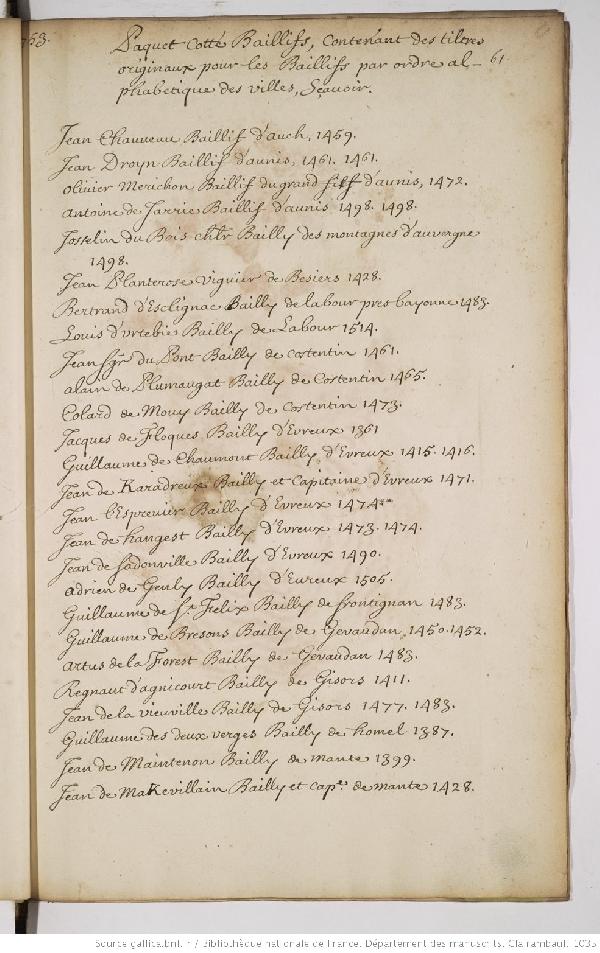 763.
Paquet Cotté Baillifs, Contenant des tiltres
originaux pour les Baillifs par ordre al- 61.
phabetique des villes, Sçavoir.
Jean Chauveau Baillif d'auch, 1459.
Jean Droyn Baillif d'aunis, 1461. 1461.
olivier Merichon Baillif du grand fief d'aunis, 1472.
antoine de Jarrie Baillif d'aunis 1498. 1498.
Josselin du Bois chlr Bailly des montagnes d'auvergne
1498.
Jean Planterose viguier de Besiers 1428.
Bertrand d'Esclignac Bailly de labour pres bayonne 1483.
Louis d'urtebie Bailly de Labour 1514.
Jean sgr du Pont Bailly de costentin 1461.
alain de Plumaugat Bailly de Costentin 1465.
Colard de Mouy Bailly de Costentin 1473.
Jacques de Floques Bailly d'Evreux 1361
Guillaume de Chaumont Bailly d'Evreux 1415. 1416.
Jean de Karadreux Bailly et Capitaine d'Evreux 1471.
Jean l'Esprevier Bailly d'Evreux 1474
Jean de hangest Bailly d'Evreux 1473. 1474.
Jean de sadonville Bailly d'Evreux 1490.
adrien de Genly Bailly d'Evreux 1505.
Guillaume de St Felix Bailly de frontignan 1483.
Guillaume de Bresons Bailly de Gevaudan, 1450. 1452.
artus de la Forest Bailly de Gevaudan 1483.
Regnaut d'agnicourt Bailly de Gisors 1411.
Jean de la vieuville Bailly de Gisors 1477. 1483.
Guillaume des deux verges Bailly de homel 1387.
Jean de Maintenon Bailly de mante 1399.
Jean de Makevillain Bailly et capne de mante 1428.
Source gallica.bnf.fr / Bibliothèque nationale de France. Département des manuscrits. Clairambault 1035